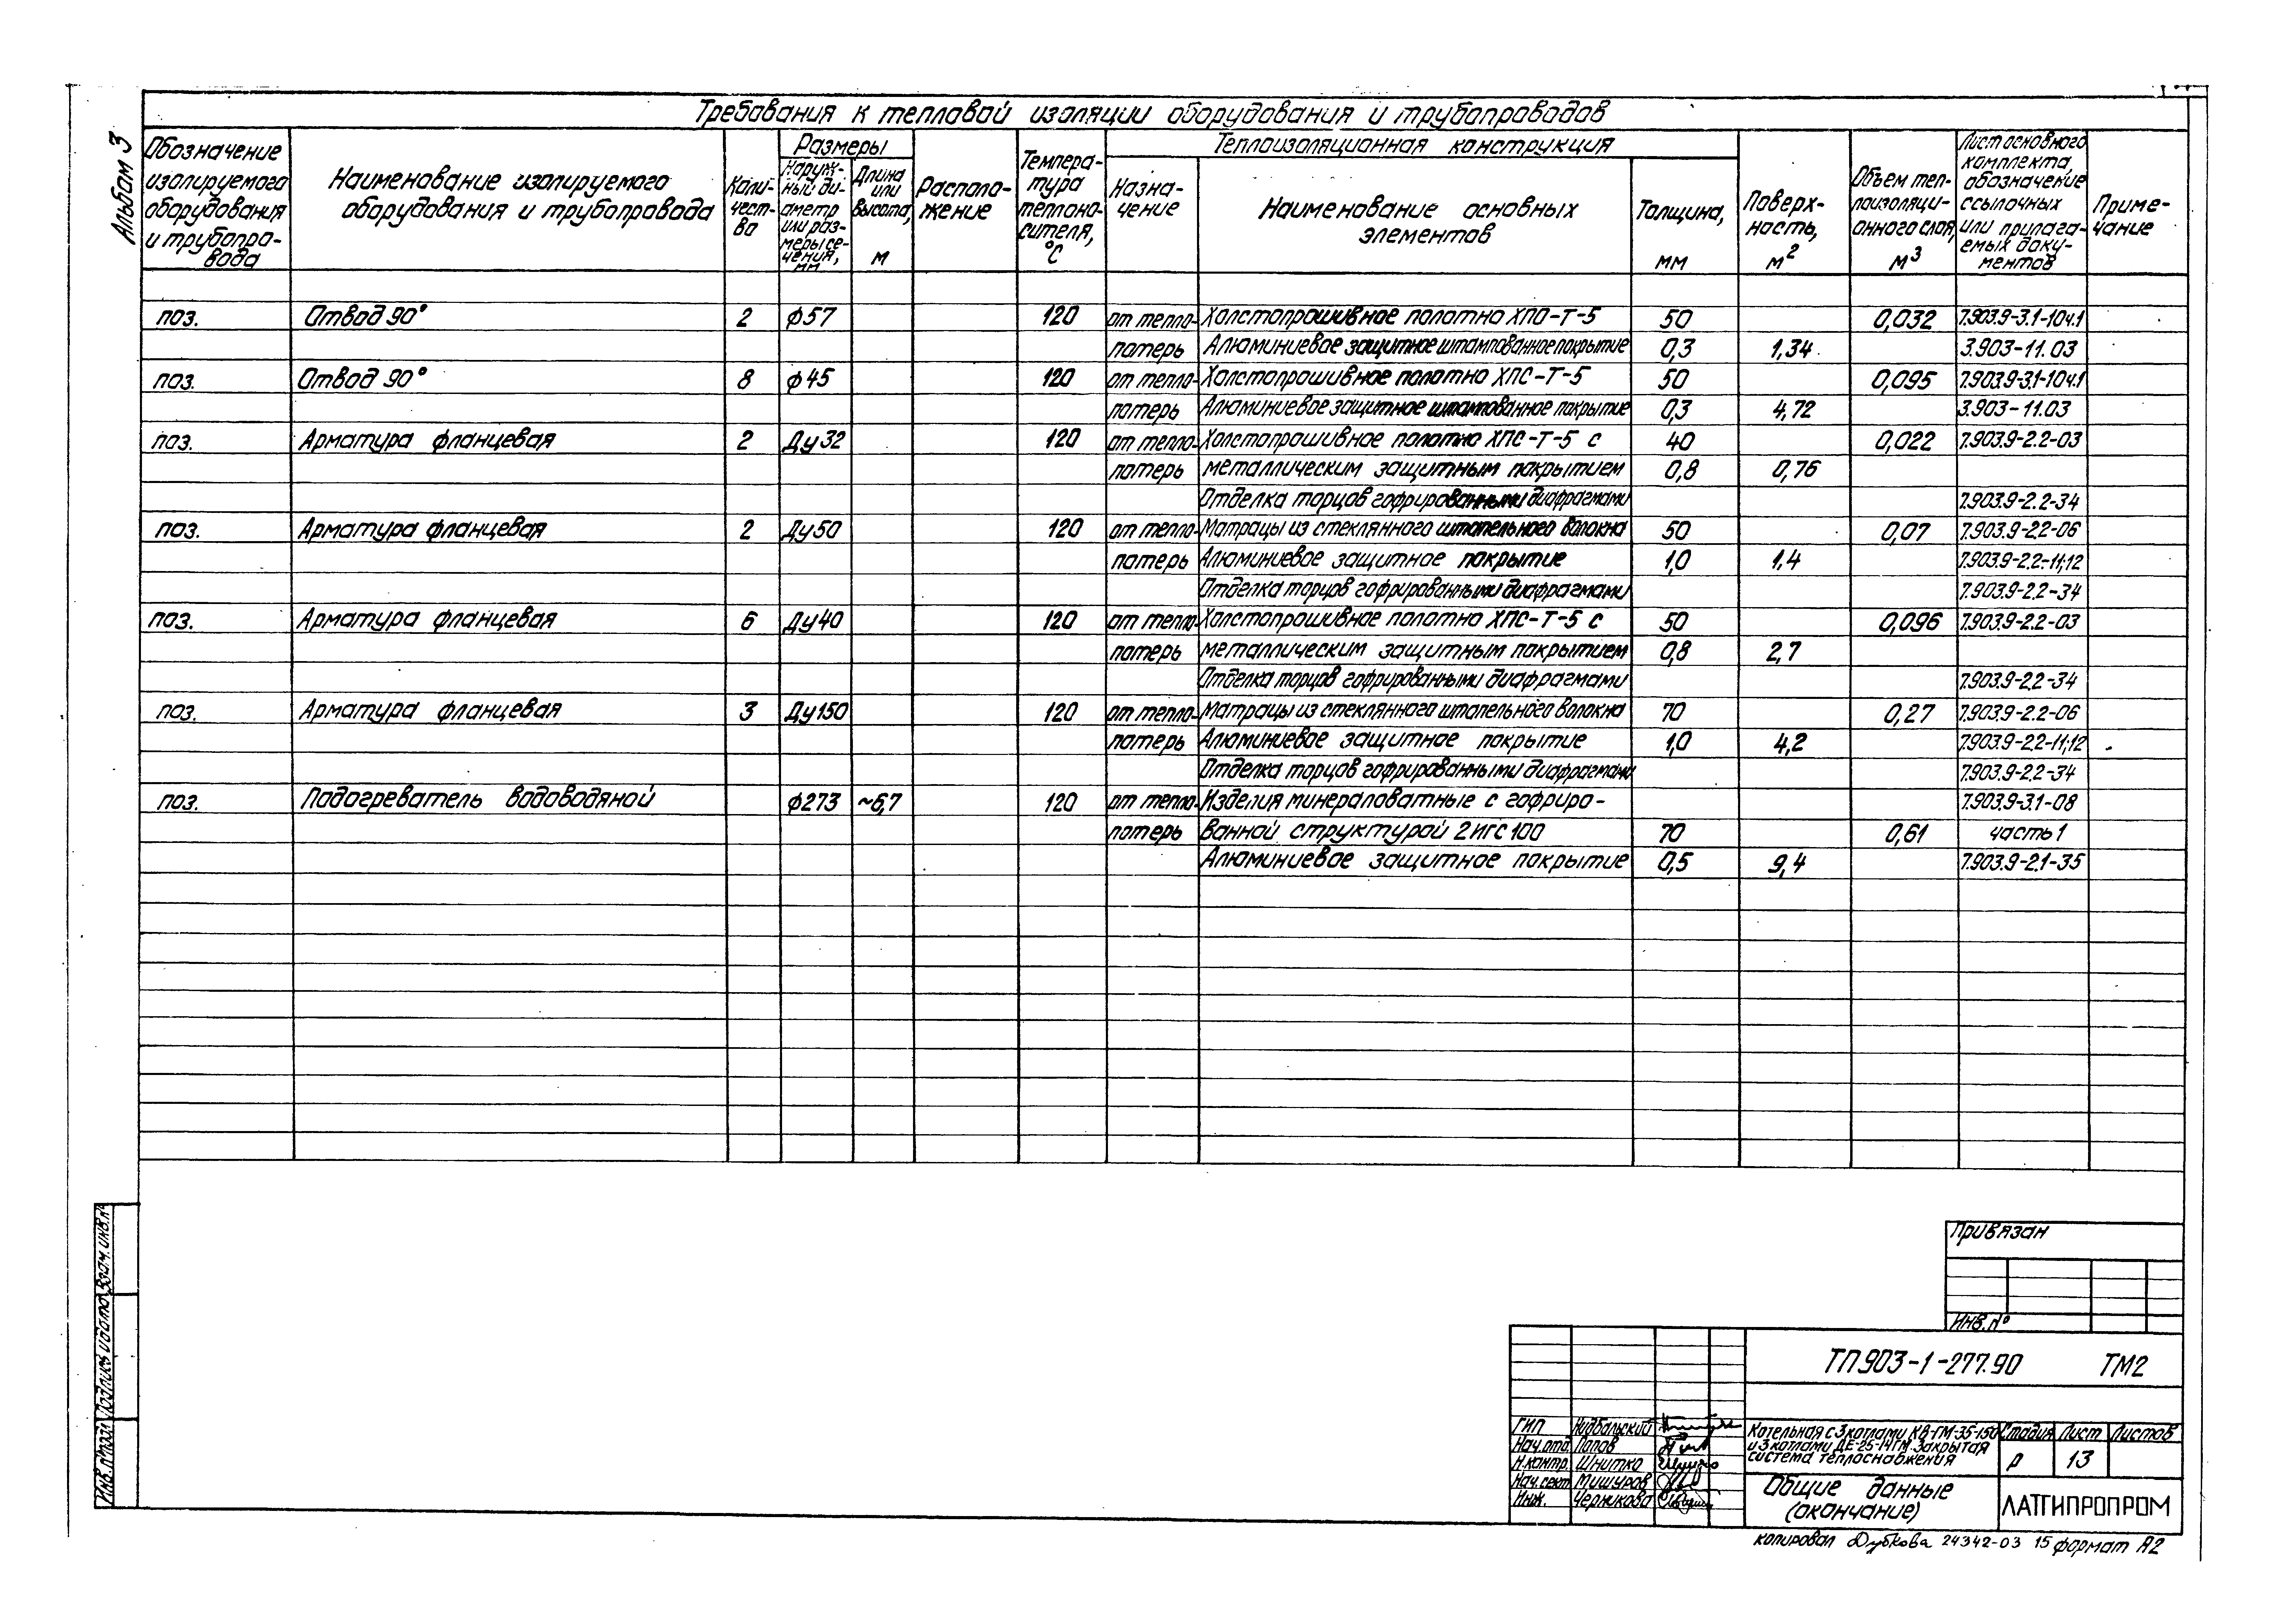 Альбом 3
Требования к тепловой изоляции оборудования и трубопроводов
Обозначение изолируемого оборудования и трубопро-вода
Наименование изолируемого оборудования и трубопровода
Коли-чест-во
Размеры
Наруж-ный ди-аметр или раз-меры се-чения, мм
Длина или высота, м
Располо-жение
Темпера-тура теплоно-сителя, °С
Теплоизоляционная конструкция
Назна-чение
Наименование основных элементов
Толщина, мм
Поверх-ность, м²
Объем теп-лоизоляци-онного слоя, м³
Лист основного комплекта, обозначение ссылочных или прилага-емых доку-ментов
Приме-чание
поз. Отвод 90° 2 ф57 120 от тепло- Холстопрошивное полотно ХПС-Т-5 50 0,032 7.903.9-3.1-10ч.1
потерь Алюминиевое защитное штампованное покрытие 0,3 1,34 3.903-11.03
поз. Отвод 90° 8 ф45 120 от тепло- Холстопрошивное полотно ХПС-Т-5 50 0,095 7.903.9-3.1-10ч.1
потерь Алюминиевое защитное штампованное покрытие 0,3 4,72 3.903-11.03
поз. Арматура фланцевая 2 Ду32 120 от тепло- Холстопрошивное полотно ХПС-Т-5 с 40 0,022 7.903.9-2.2-03
потерь металлическим защитным покрытием 0,8 0,76
Отделка торцов гофрированными диафрагмами 7.903.9-2.2-34
поз. Арматура фланцевая 2 Ду50 120 от тепло- Матрацы из стеклянного штапельного волокна 50 0,07 7.903.9-2.2-06
потерь Алюминиевое защитное покрытие 1,0 1,4 7.903.9-2.2-11;12
Отделка торцов гофрированными диафрагмами 7.903.9-2.2-34
поз. Арматура фланцевая 6 Ду40 120 от тепло- Холстопрошивное полотно ХПС-Т-5 с 50 0,096 7.903.9-2.2-03
потерь металлическим защитным покрытием 0,8 2,7
Отделка торцов гофрированными диафрагмами 7.903.9-2.2-34
поз. Арматура фланцевая 3 Ду150 120 от тепло- Матрацы из стеклянного штапельного волокна 70 0,27 7.903.9-2.2-06
потерь Алюминиевое защитное покрытие 1,0 4,2 7.903.9-2.2-11;12
Отделка торцов гофрированными диафрагмами 7.903.9-2.2-34
поз. Подогреватель водоводяной ф273 ~6,7 120 от тепло- Изделия минераловатные с гофриро- 7.903.9-3.1-08
потерь ванной структурой 2ИГС100 70 0,61 часть 1
Алюминиевое защитное покрытие 0,5 9,4 7.903.9-2.1-35
Взам. инв. №
Подпись и дата
Инв. № подл.
Привязан
Инв. №
ТП903-1-277.90 ТМ2
ГИП Нидбальский
Нач. отд. Попов
Н. контр. Шнитко
Нач. сект. Мишуров
Инж. Черникова
Котельная с 3 котлами КВ-ГМ-35-150
и 3 котлами ДЕ-25-14ГМ. Закрытая
система теплоснабжения
Стадия Лист Листов
Р 13
Общие данные
(окончание)
ЛАТГИПРОПРОМ
копировал Дубкова 24342-03 15 формат А2